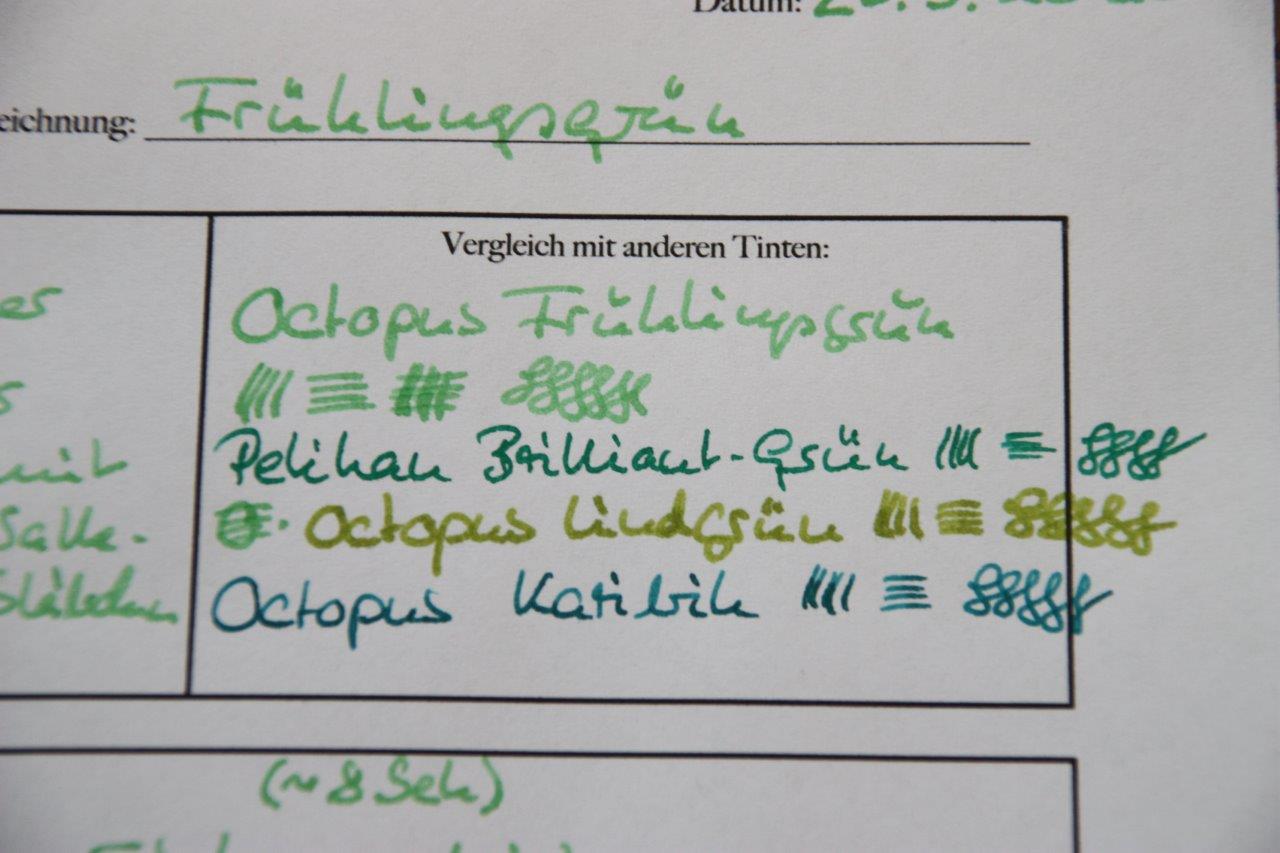 Datum:
eichnung: Frühlingsgrün
Vergleich mit anderen Tinten:
er
Octopus Frühlingsgrün
s
Pelikan Brilliant-Grün
mit
Octopus Lindgrün
Octopus Karibik
(~8 Sek)